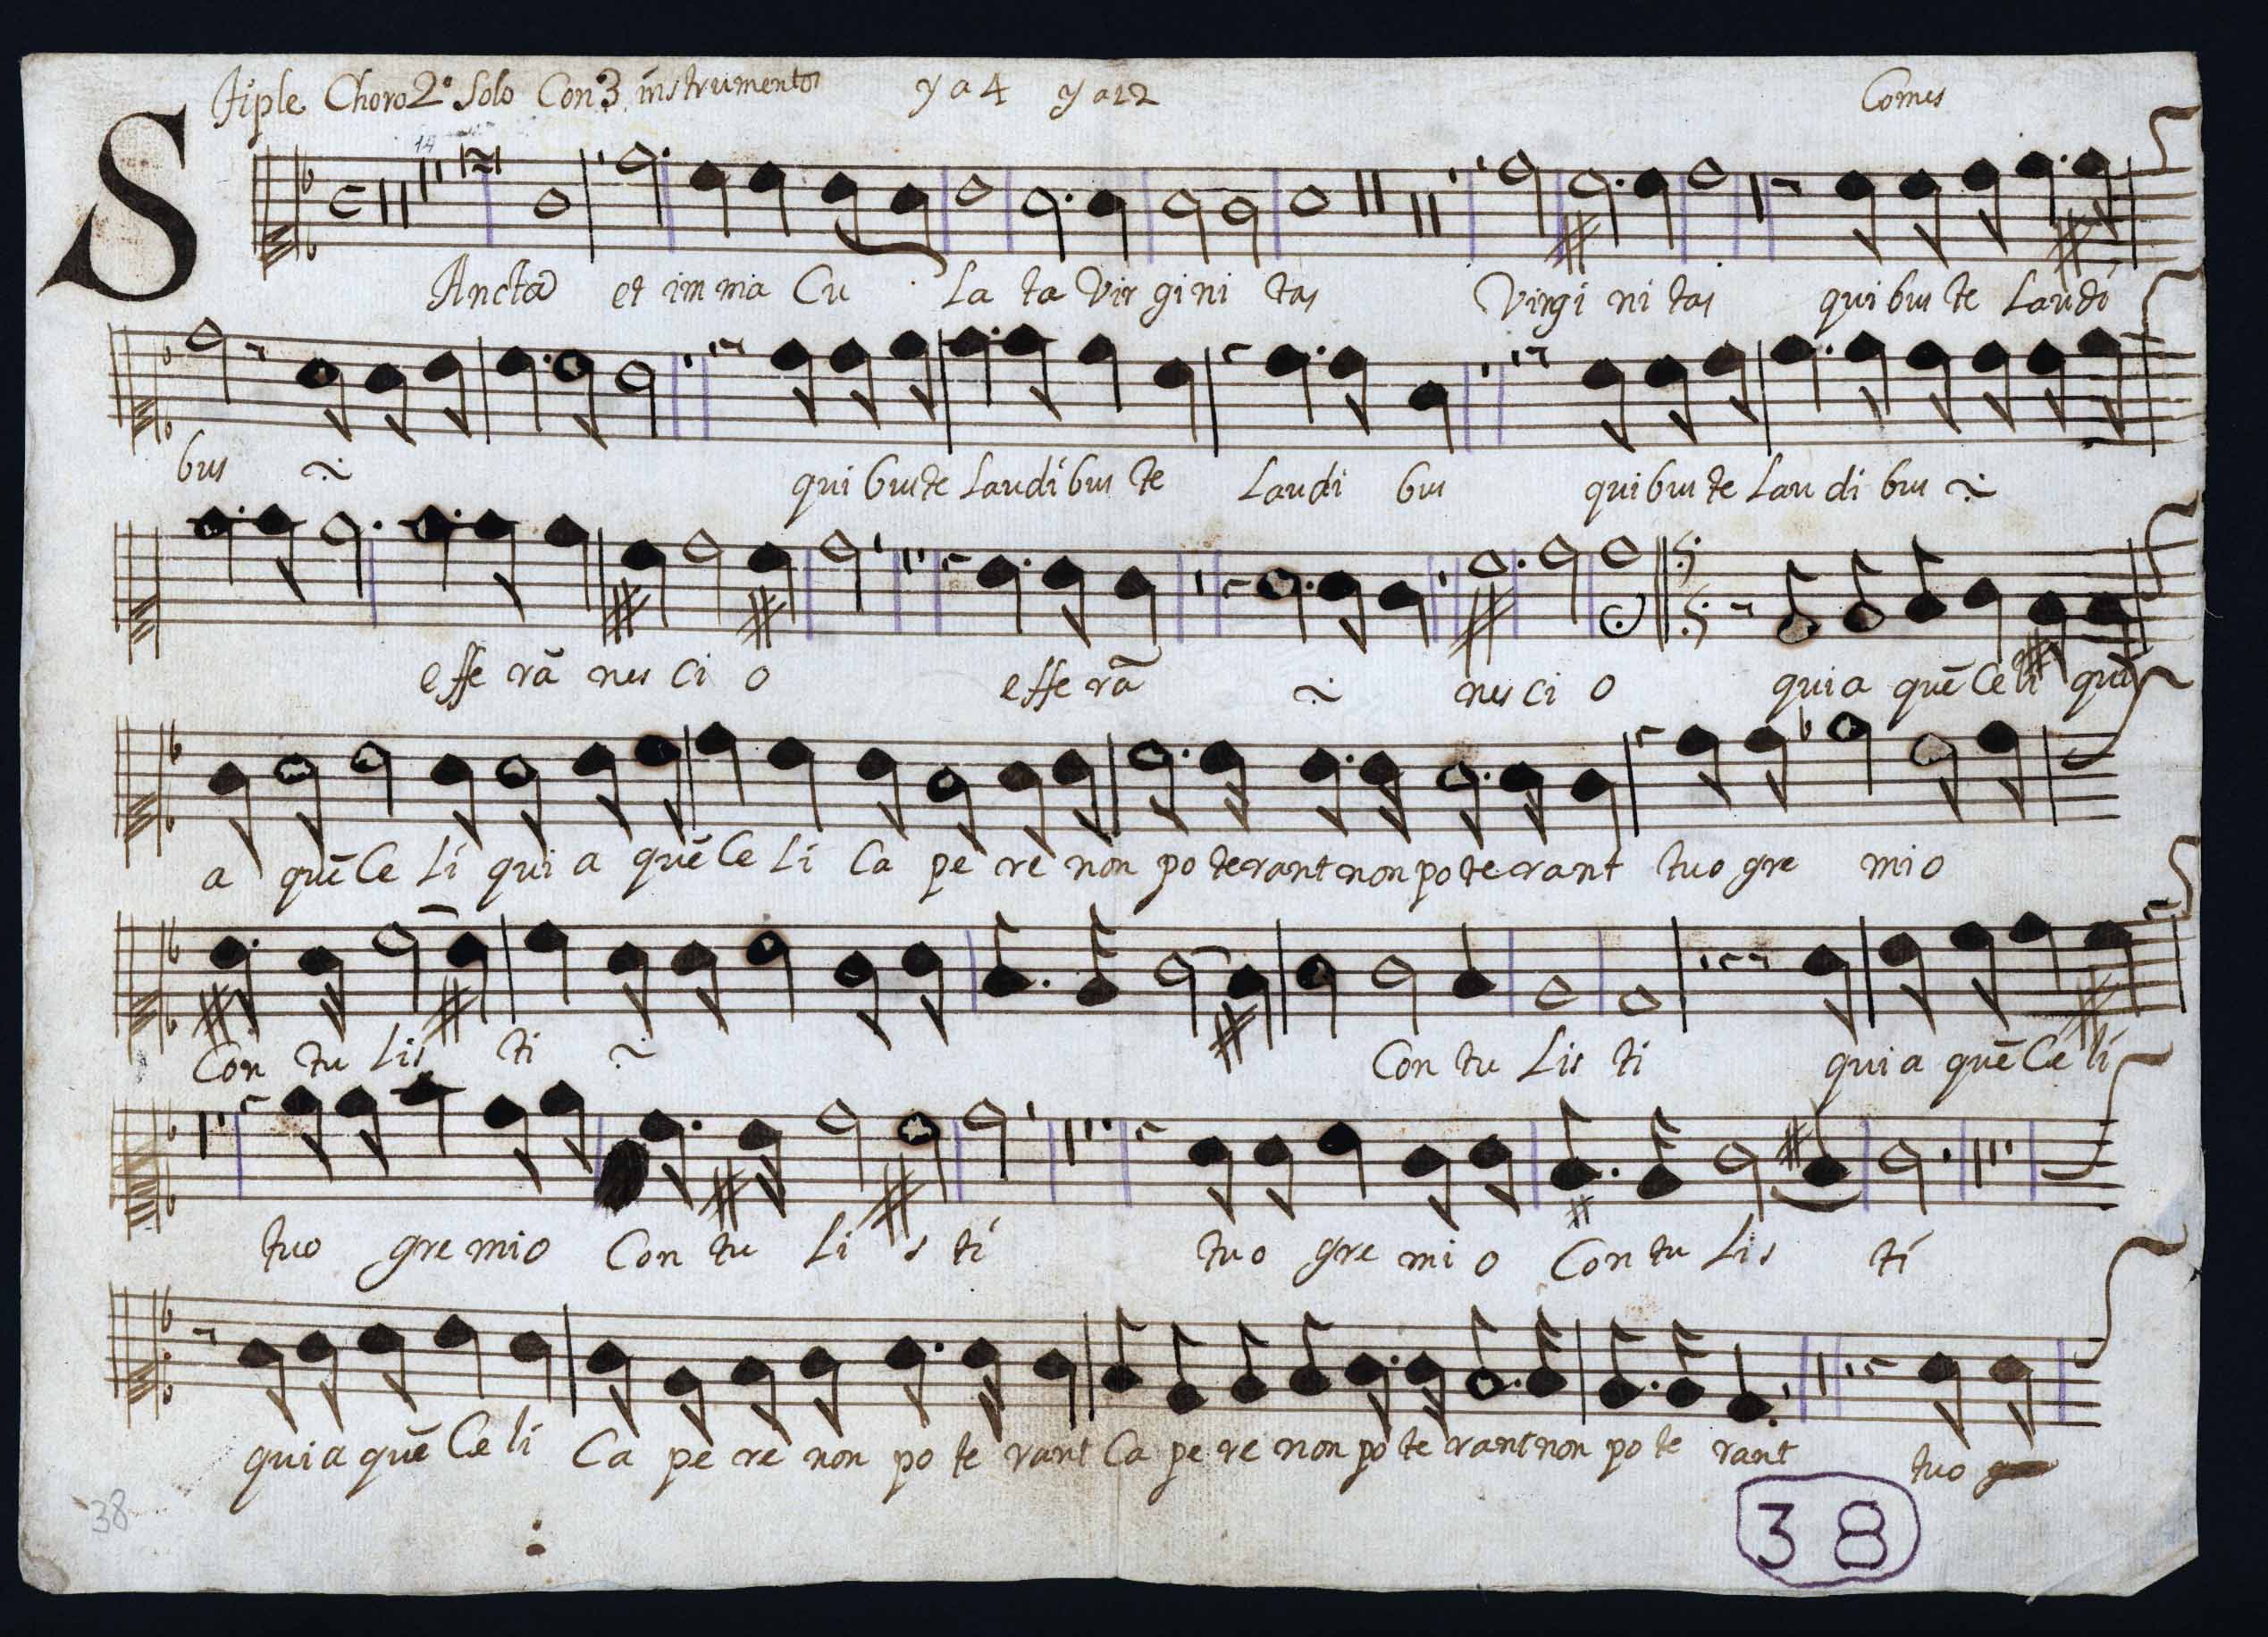 Tiple Choro 2º Solo Con 3 instrumentos y a 4 y a 12 Comes
14
SAncta et im ma Cu La ta Vir gi ni tas Virgi ni tas qui bus te Laudi
bus qui bus te Laudi bus te Laudi bus qui bus te Lau di bus
effe rā nes ci o effe rā nes ci o qui a quē Celi qui
a quē Ce Li qui a quē Ce Li Ca pe re non po te rant non po te rant tuo gre mio
Con tu Lis ti Con tu Lis ti qui a quē Ce li
tuo gre mio Con tu Li s ti tu o gre mi o Con tu Lis ti
qui a quē Ce li Ca pe re non po te rant Ca pe re non po te rant non po te rant tuo
38
38